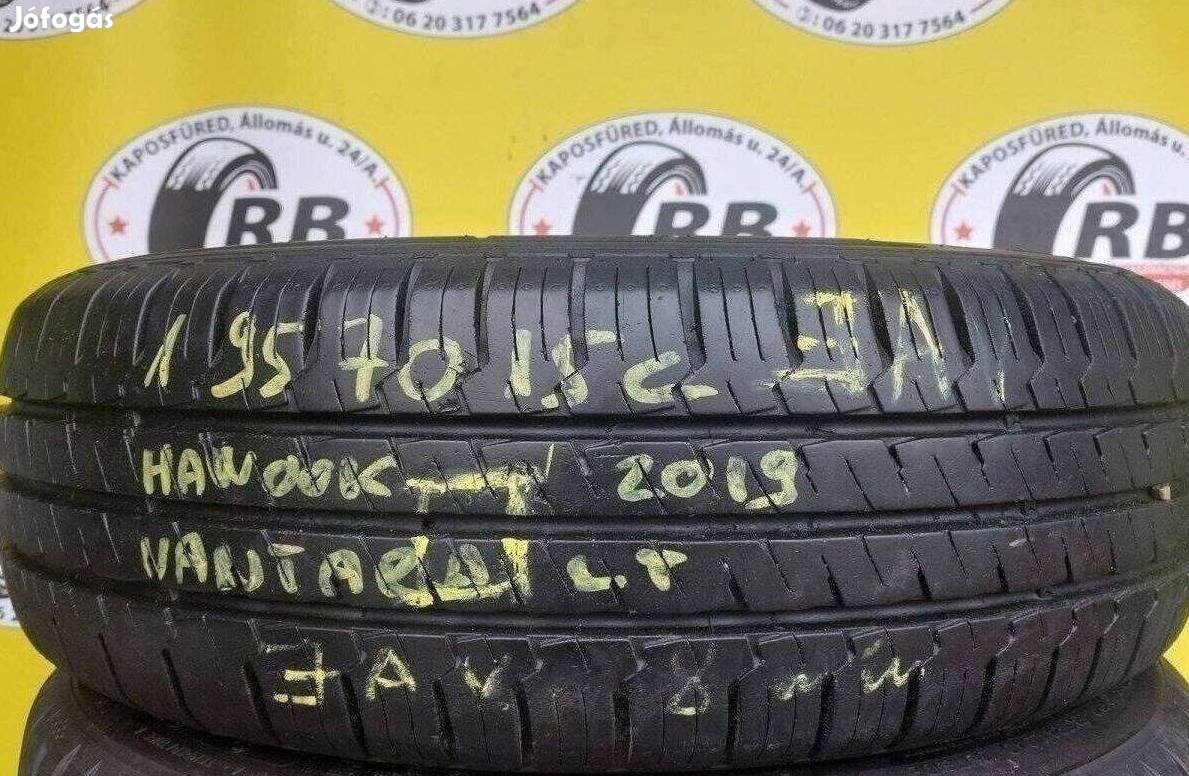 Jófogás
☏: 06 20 317 7564
☏: 06 20 317 7564
KAPOSFÜRED, Állomás u. 24/A.
RB
KAPOSFÜRED, Állomás u. 24/A.
RB
KAPOSFÜRED, Állomás u. 24/A.
RB
195 70 15 C JAV
HANOOK 2019
JAV 8 mm